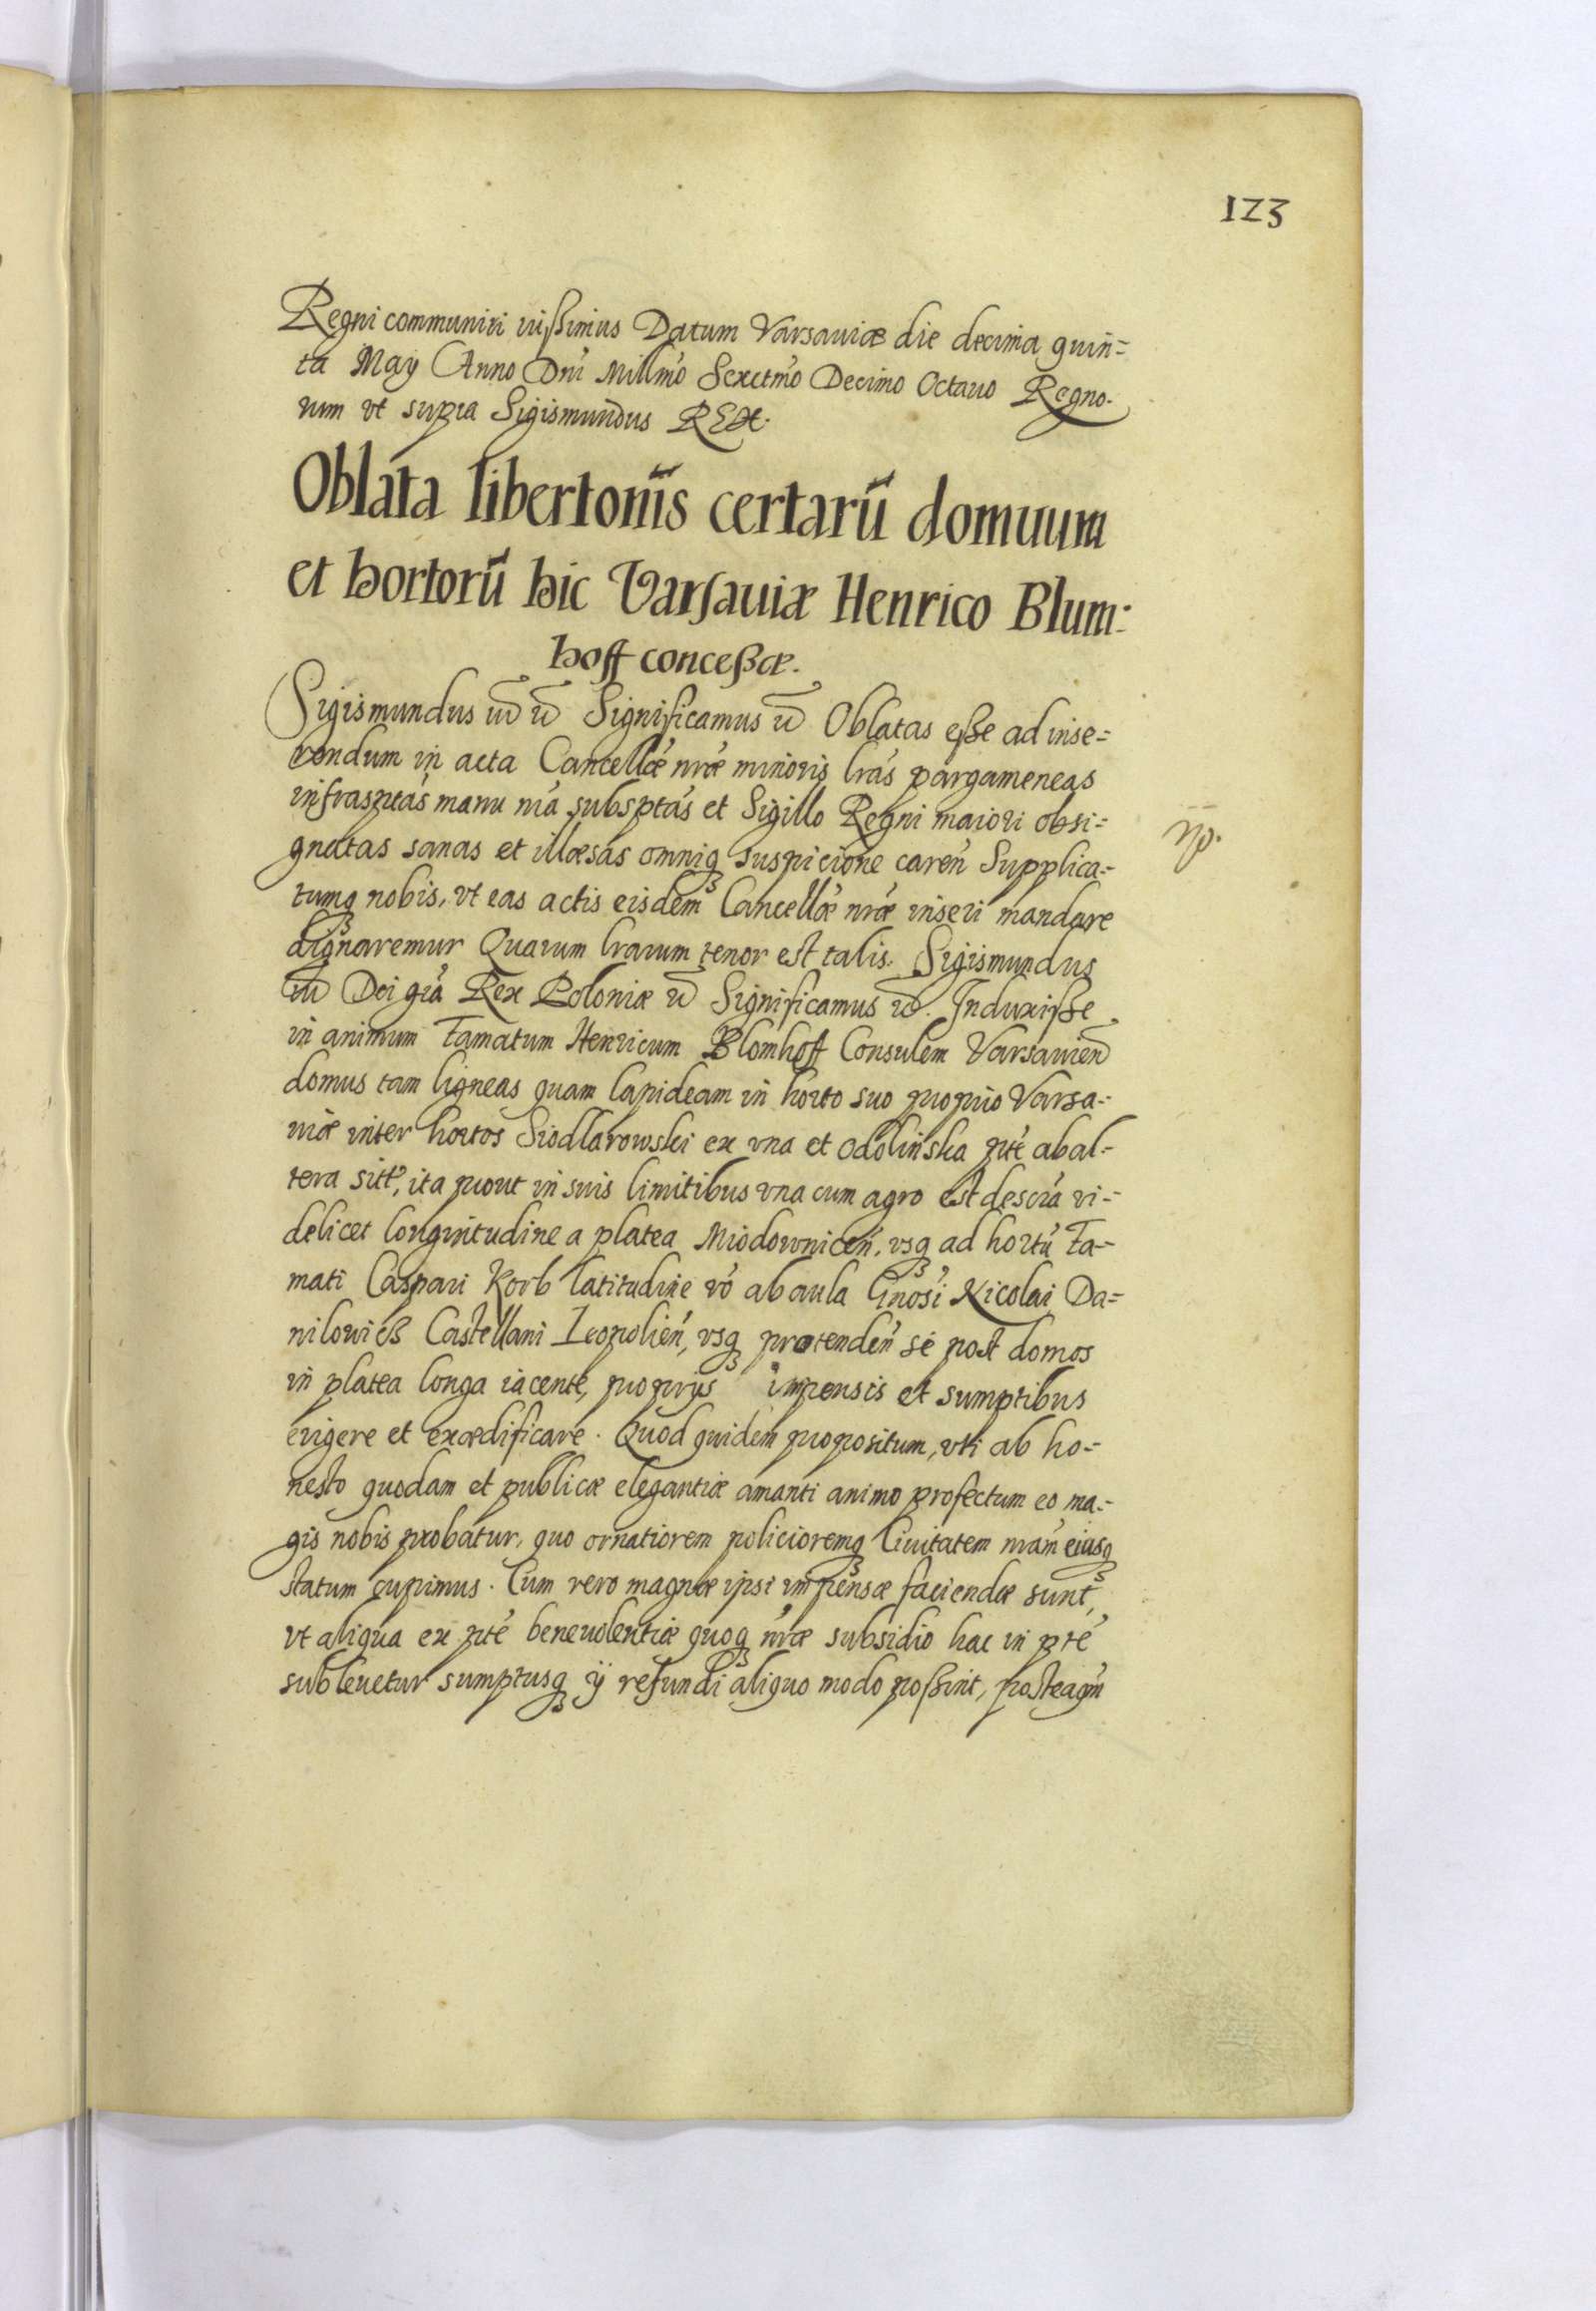 123
Regni communiri iussimus Datum Varsauiæ die decima quin=
ta May Anno Dni Millmo Sexctmo Decimo Octauo Regno.
rum vt supra Sigismundus REX.
Oblata libertonis certarū domuum
et hortorū hic Varsauiæ Henrico Blum:
hoff conceßæ.
Sigismundus Significamus Oblatas eße ad inse=
rendum in acta Cancellæ nræ minoris lras pargameneas
infrasptas manu nra subsptas et Sigillo Regni maiori obsi=
gnatas sanas et illæsas omniq₃ suspicione caren Supplica=
tumq₃ nobis, vt eas actis eisdem Cancellæ nræ inseri mandare
dignaremur Quarum lrarum tenor est talis. Sigismundus
Dei gra Rex Poloniæ Significamus Induxiße
in animum Famatum Henricum Blomhoff Consulem Varsauien
domus tam ligneas quam lapideam in horto suo proprio Varsa=
uiæ inter hortos Siodlarowski ex vna et Odolinska pte ab al=
tera sitt, ita prout in suis limitibus vna cum agro est descra vi=
delicet longitudine a platea Miodownicen, vsq₃ ad hortū Fa=
mati Caspari Korb latitudine vo ab aula Gnosi Nicolai Da=
nilowicß Castellani Leopolien, vsq₃ protenden se post domos
in platea longa iacente, proprijs impensis et sumptibus
erigere et exædificare. Quod quidem propositum, vti ab ho=
nesto quodam et publicæ elegantiæ amanti animo profectum eo ma=
gis nobis probatur, quo ornatiorem policioremq₃ Ciuitatem nram eiusq₃
statum cupimus. Cum vero magnæ ipsi impensæ faciendæ sunt,
vt aliqua ex pte beneuolentiæ quoq₃ nræ subsidio hac in pte
subleuetur sumptusq₃ ij refundi aliquo modo poßint, posteaqm